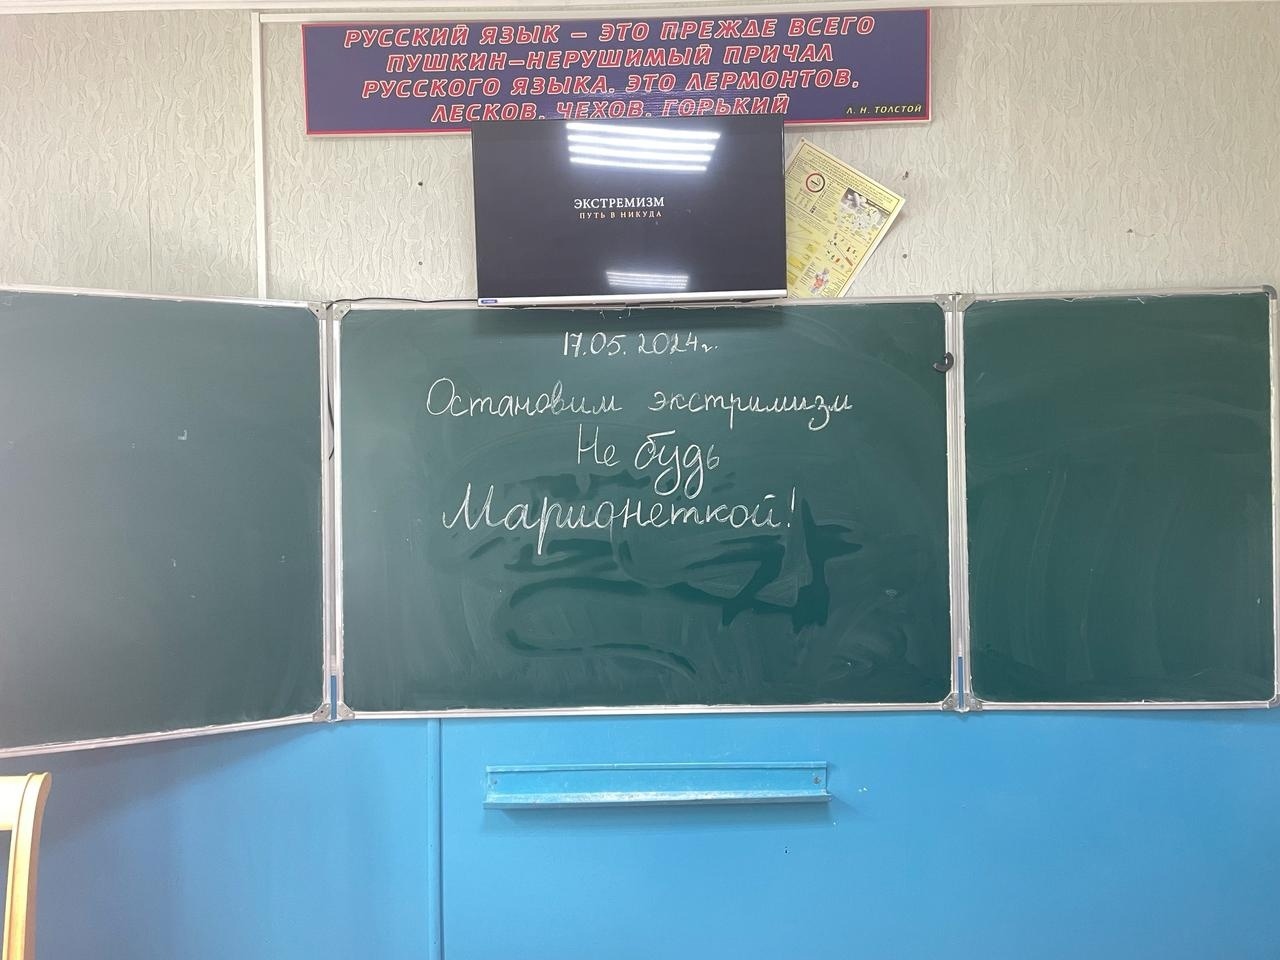 РУССКИЙ ЯЗЫК – ЭТО ПРЕЖДЕ ВСЕГО
ПУШКИН–НЕРУШИМЫЙ ПРИЧАЛ
РУССКОГО ЯЗЫКА. ЭТО ЛЕРМОНТОВ,
ЛЕСКОВ, ЧЕХОВ, ГОРЬКИЙ
Л. Н. ТОЛСТОЙ
ЭКСТРЕМИЗМ
ПУТЬ В НИКУДА
17.05.2024г.
Остановим экстримизм
Не будь
Марионеткой!